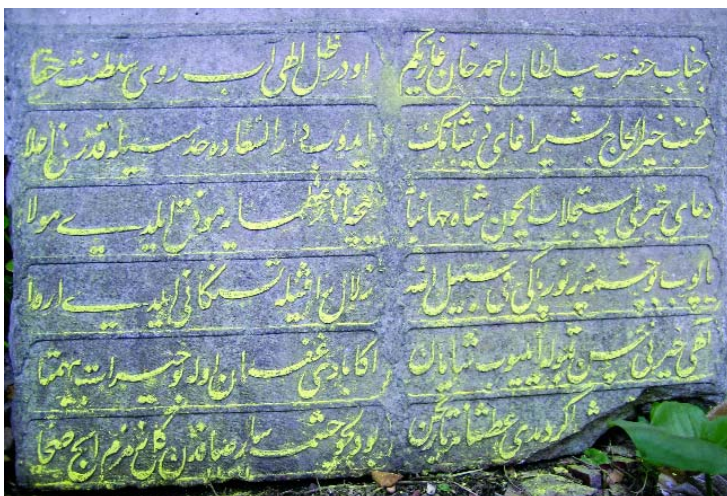 جناب حضرت سلطان احمد خان غازی کیم اودر ظل الهی آب روی سلطنت حقا
محب خیر الحاج بشیر اغای ذیشانک ایدوب دار السعاده خدمتیله قدرنی اعلا
دعای خیرنی استجلاب ایچون شاه جهانبا نیجه اثار عظمایه موفق ایلدی مولا
یاپوب بو چشمه پرنور پاکی فی سبیل الله زلال تشنکانی ایلدی اروا
الهی خیرنی حسن قبوله ایلیوب شایان اکا بادی غفران اوله بو خیرات بیهمتا
شاکر دیدی عطشانه تاریخن بو دلجو چشمه سار کل زمزم ایچ صحا